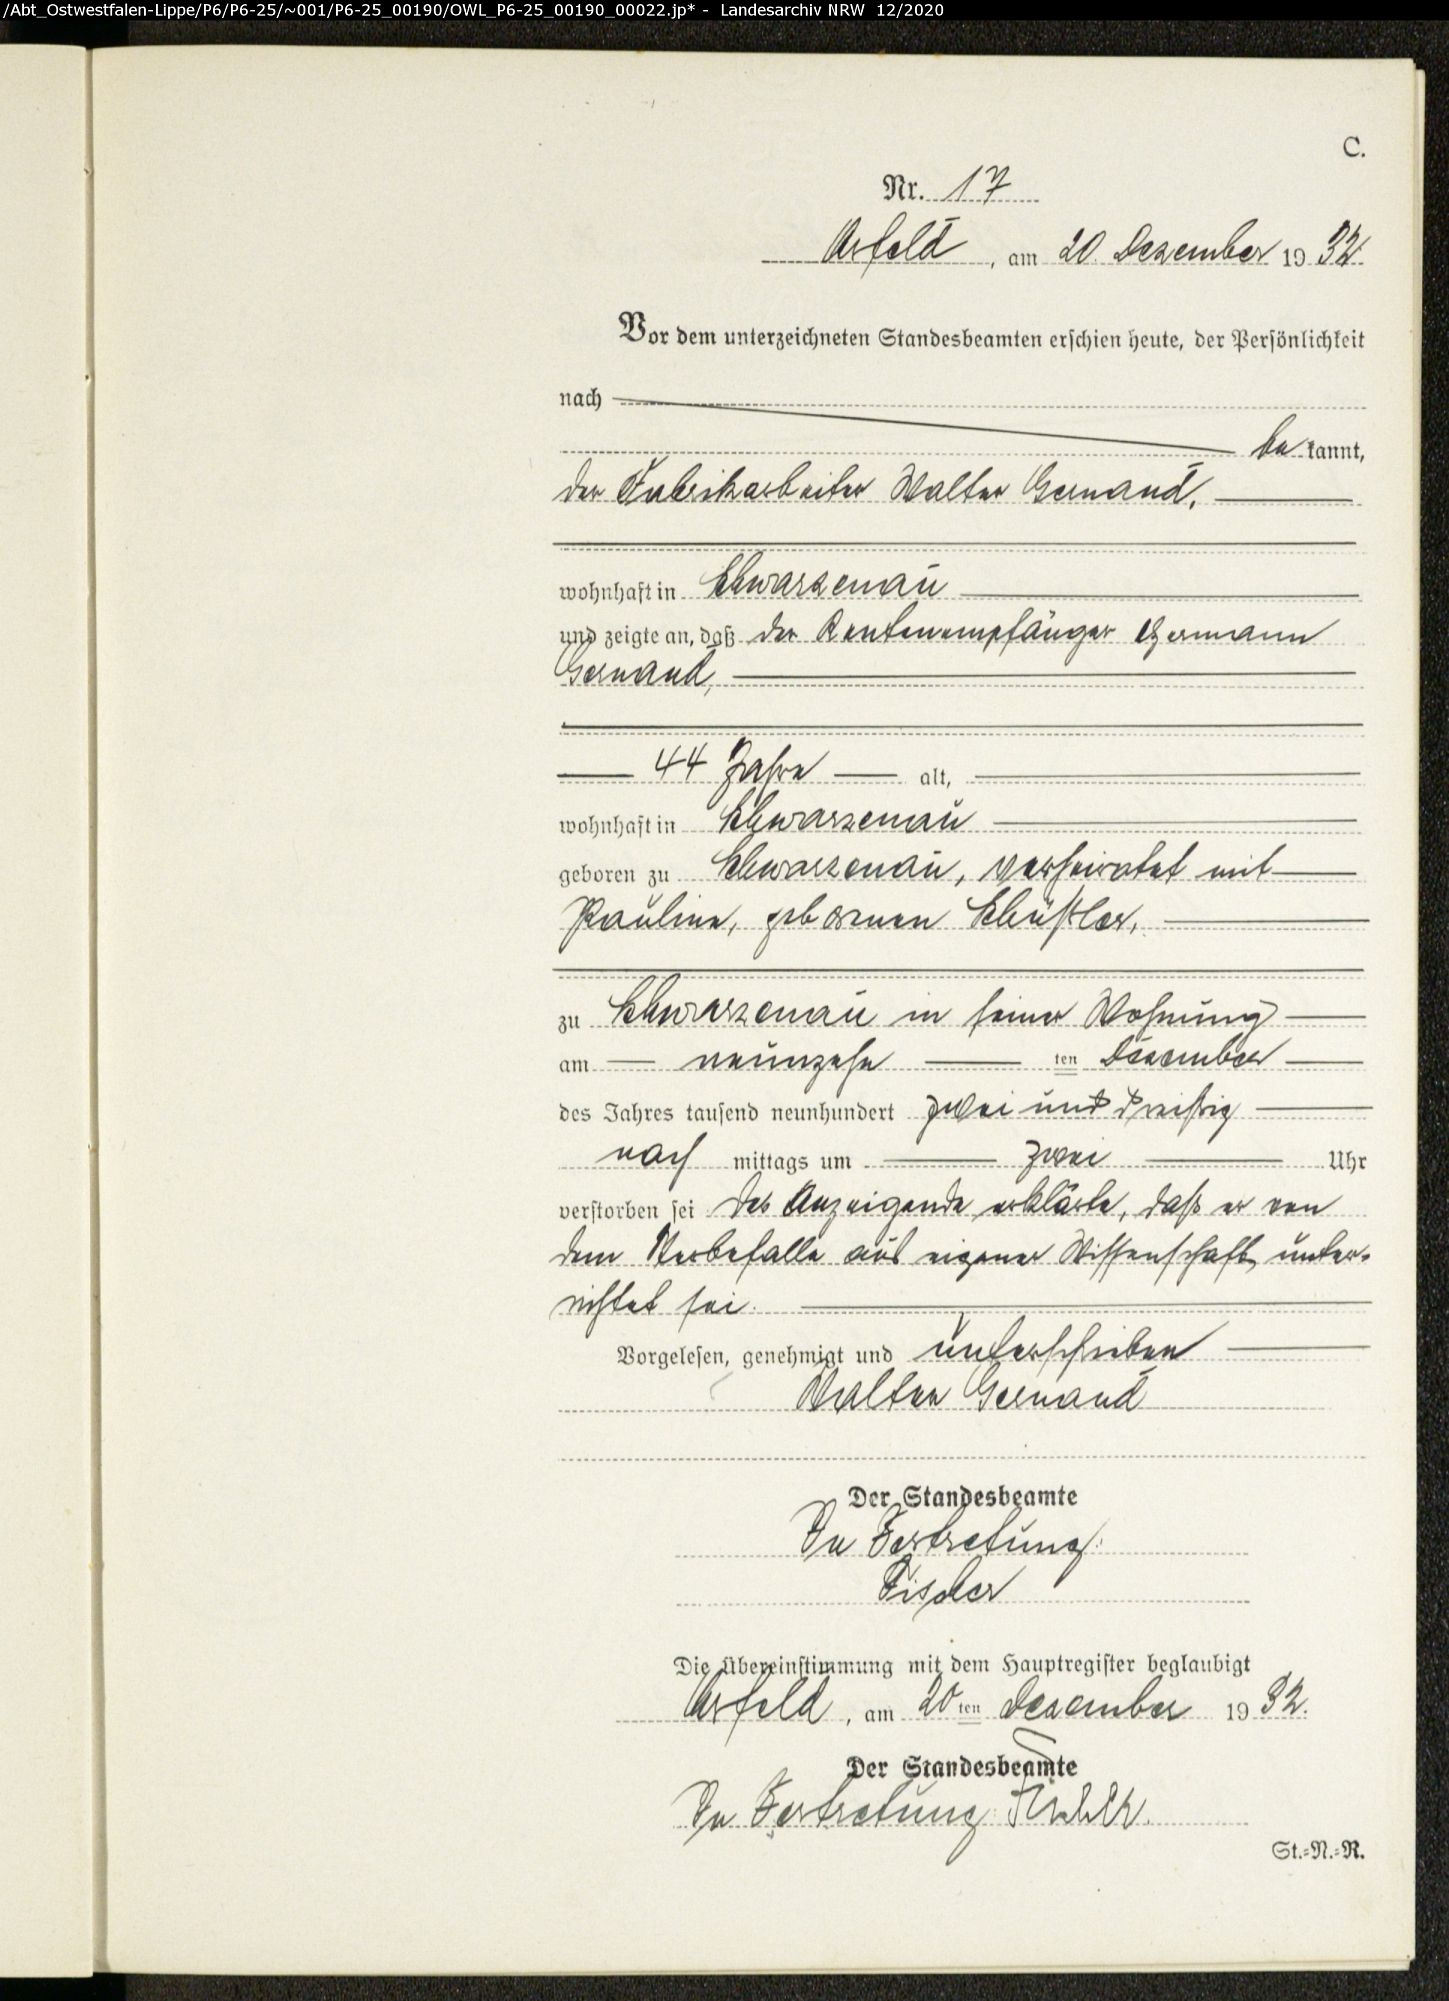 /Abt_Ostwestfalen-Lippe/P6/P6-25/~001/P6-25_00190/OWL_P6-25_00190_00022.jp* - Landesarchiv NRW 12/2020
C.
Nr. 17
Arfeld, am 20. Dezember 1932.
Vor dem unterzeichneten Standesbeamten erschien heute, der Persönlichkeit
nach
bekannt,
der Fabrikarbeiter Walter Gernand,
wohnhaft in Schwarzenau
und zeigte an, daß der Rentenempfänger Hermann
Gernand,
44 Jahre alt,
wohnhaft in Schwarzenau
geboren zu Schwarzenau, verheiratet mit
Pauline, gebornen Schüßler,
zu Schwarzenau in seiner Wohnung
am neunzehn ten Dezember
des Jahres tausend neunhundert zwei und dreißig
nach mittags um zwei Uhr
verstorben sei Der Anzeigende erklärte, daß er von
dem Sterbefalle aus eigener Wissenschaft unter-
richtet sei.
Vorgelesen, genehmigt und unterschrieben
Walter Gernand
Der Standesbeamte
In Vertretung:
Fischer
Die Übereinstimmung mit dem Hauptregister beglaubigt
Arfeld, am 20ten Dezember 1932.
Der Standesbeamte
In Vertretung: Fischer.
St.=N.=R.